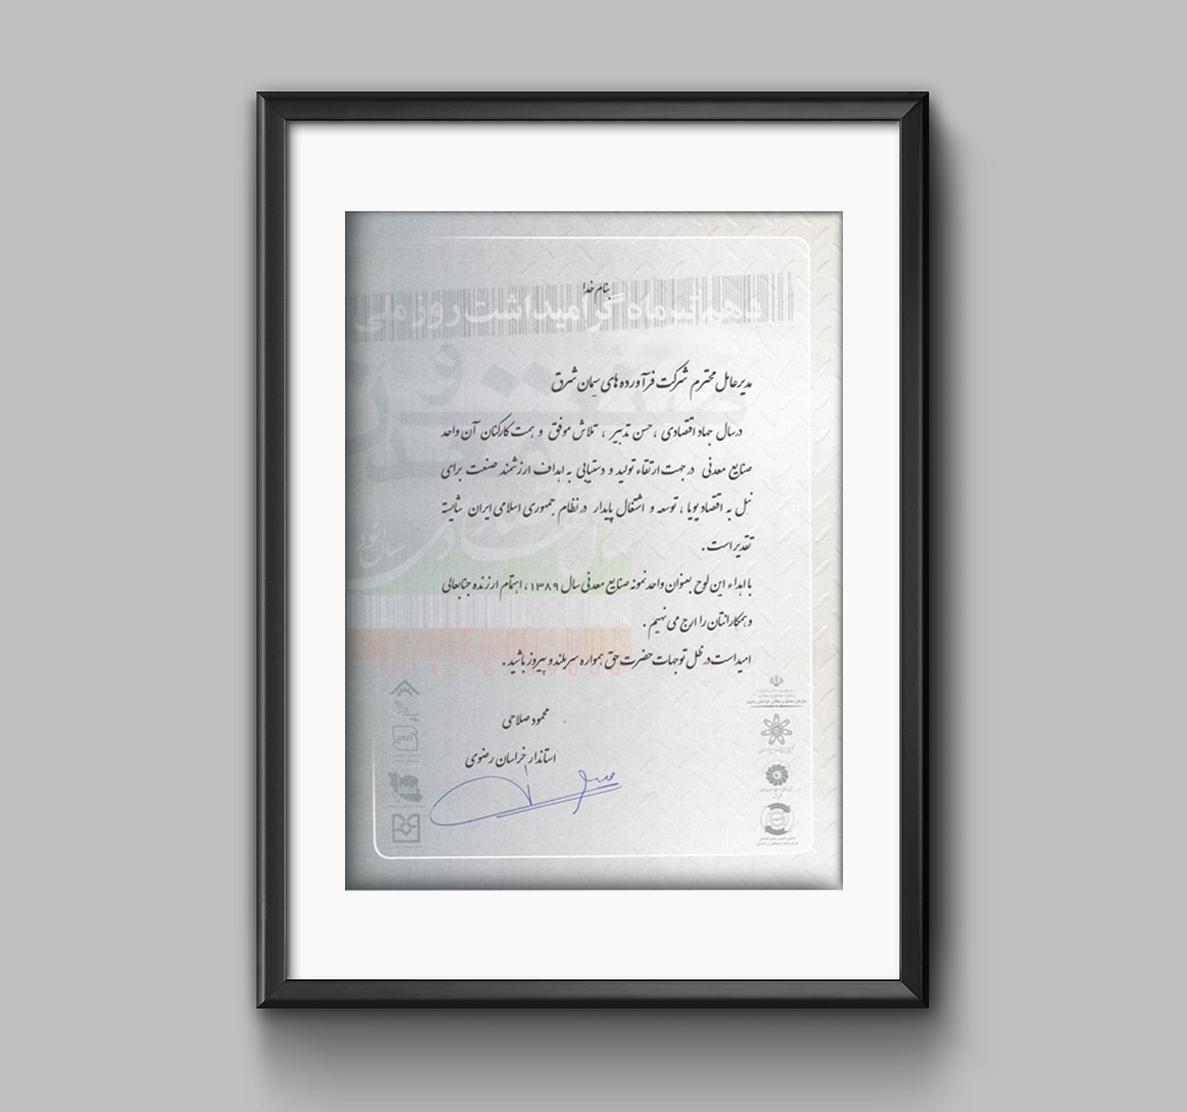 بنام خدا
دهم تیرماه گرامیداشت روز ملی
صنعت و
مدیرعامل محترم شرکت فرآورده های سیمان شرق
درسال جهاد اقتصادی ، حسن تدبیر ، تلاش موفق و همت کارکنان آن واحد
صنایع معدنی در جهت ارتقاء تولید و دستیابی به اهداف ارزشمند صنعت برای
نیل به اقتصاد پویا ، توسعه و اشتغال پایدار در نظام جمهوری اسلامی ایران شایسته
تقدیر است .
با اهداء این لوح بعنوان واحد نمونه صنایع معدنی سال ۱۳۸۹ ، اهتمام ارزنده جنابعالی
و همکارانتان را ارج می نهیم .
امید است در ظل توجهات حضرت حق همواره سربلند و پیروز باشید .
محمود صلاحی
استاندار خراسان رضوی